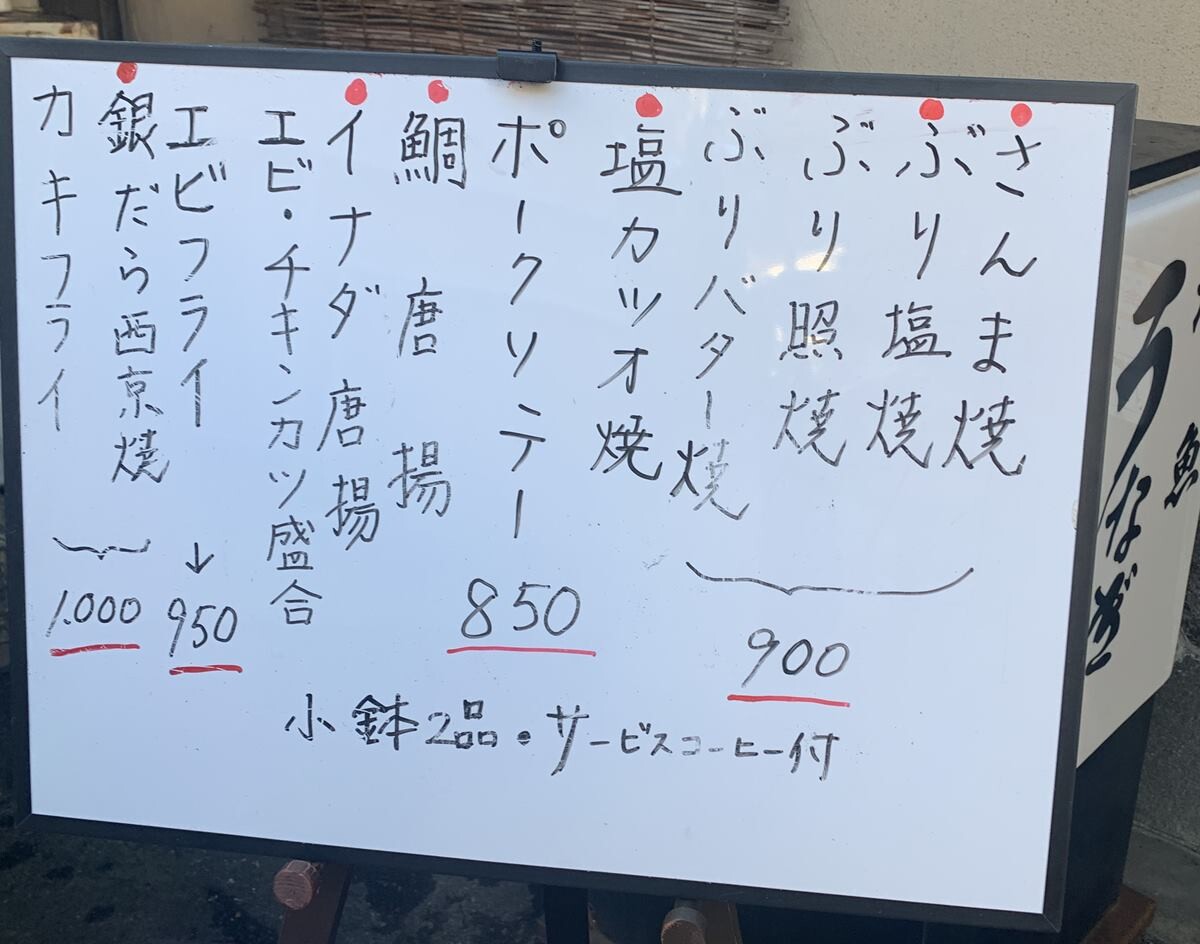 さんま焼
ぶり塩焼
ぶり照焼
ぶりバター焼
900
塩カツオ焼
ポークソテー
鯛 唐揚
イナダ唐揚
エビ・チキンカツ盛合
850
エビフライ
↓
950
銀だら西京焼
カキフライ
1.000
小鉢2品・サービスコーヒー付
うなぎ
魚